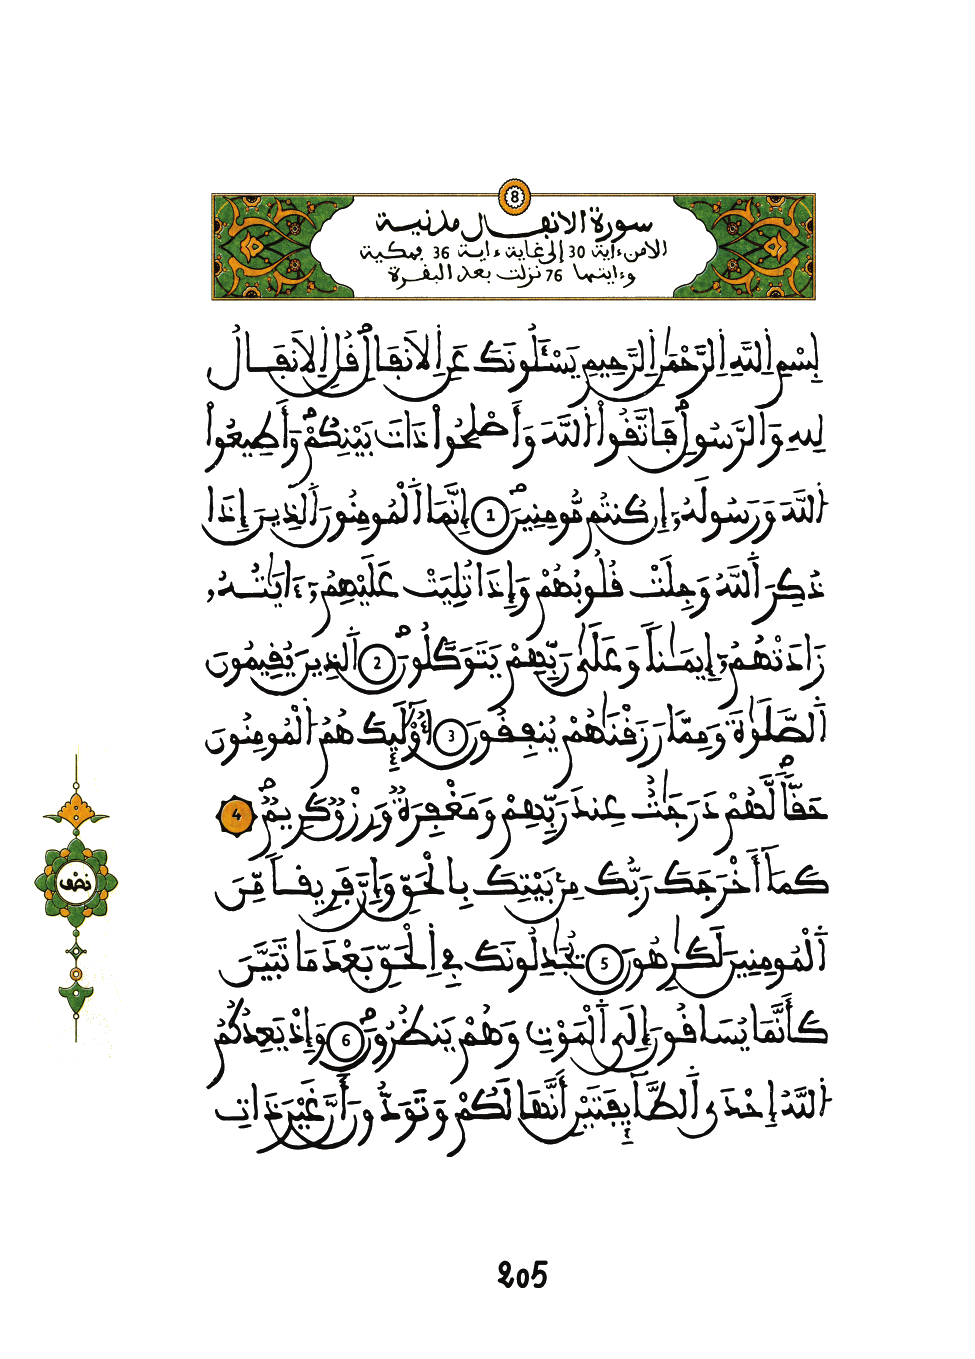 8
سورة الانفال مدنية
الا من ءاية 30 إلى غاية ءاية 36 فمكية
وءايتها 76 نزلت بعد البقرة
بِسْمِ اللَّهِ الرَّحْمَٰنِ الرَّحِيمِ يَسْـَٔلُونَكَ عَنِ الْأَنفَالِ قُلِ الْأَنفَالُ
لِلهِ وَالرَّسُولِ فَاتَّقُوا اللَّهَ وَأَصْلِحُوا ذَاتَ بَيْنِكُمْ وَأَطِيعُوا
اللَّهَ وَرَسُولَهُۥٓ إِن كُنتُم مُّومِنِينَ 1 إِنَّمَا الْمُومِنُونَ الَّذِينَ إِذَا
ذُكِرَ اللَّهُ وَجِلَتْ قُلُوبُهُمْ وَإِذَا تُلِيَتْ عَلَيْهِمُۥٓ ءَايَٰتُهُۥ
زَادَتْهُمُۥٓ إِيمَٰناً وَعَلَىٰ رَبِّهِمْ يَتَوَكَّلُونَ 2 الَّذِينَ يُقِيمُونَ
الصَّلَوٰةَ وَمِمَّا رَزَقْنَٰهُمْ يُنفِقُونَ 3 أُوْلَٰٓئِكَ هُمُ الْمُومِنُونَ
حَقّاً لَّهُمْ دَرَجَٰتٌ عِندَ رَبِّهِمْ وَمَغْفِرَةٌ وَرِزْقٌ كَرِيمٌ 4
كَمَآ أَخْرَجَكَ رَبُّكَ مِنۢ بَيْتِكَ بِالْحَقِّ وَإِنَّ فَرِيقاً مِّنَ
الْمُومِنِينَ لَكَٰرِهُونَ 5 يُجَٰدِلُونَكَ فِي الْحَقِّ بَعْدَ مَا تَبَيَّنَ
كَأَنَّمَا يُسَاقُونَ إِلَى الْمَوْتِ وَهُمْ يَنظُرُونَ 6 وَإِذْ يَعِدُكُمُ
اللَّهُ إِحْدَى الطَّآئِفَتَيْنِ أَنَّهَا لَكُمْ وَتَوَدُّونَ أَنَّ غَيْرَ ذَاتِ
نصف
205